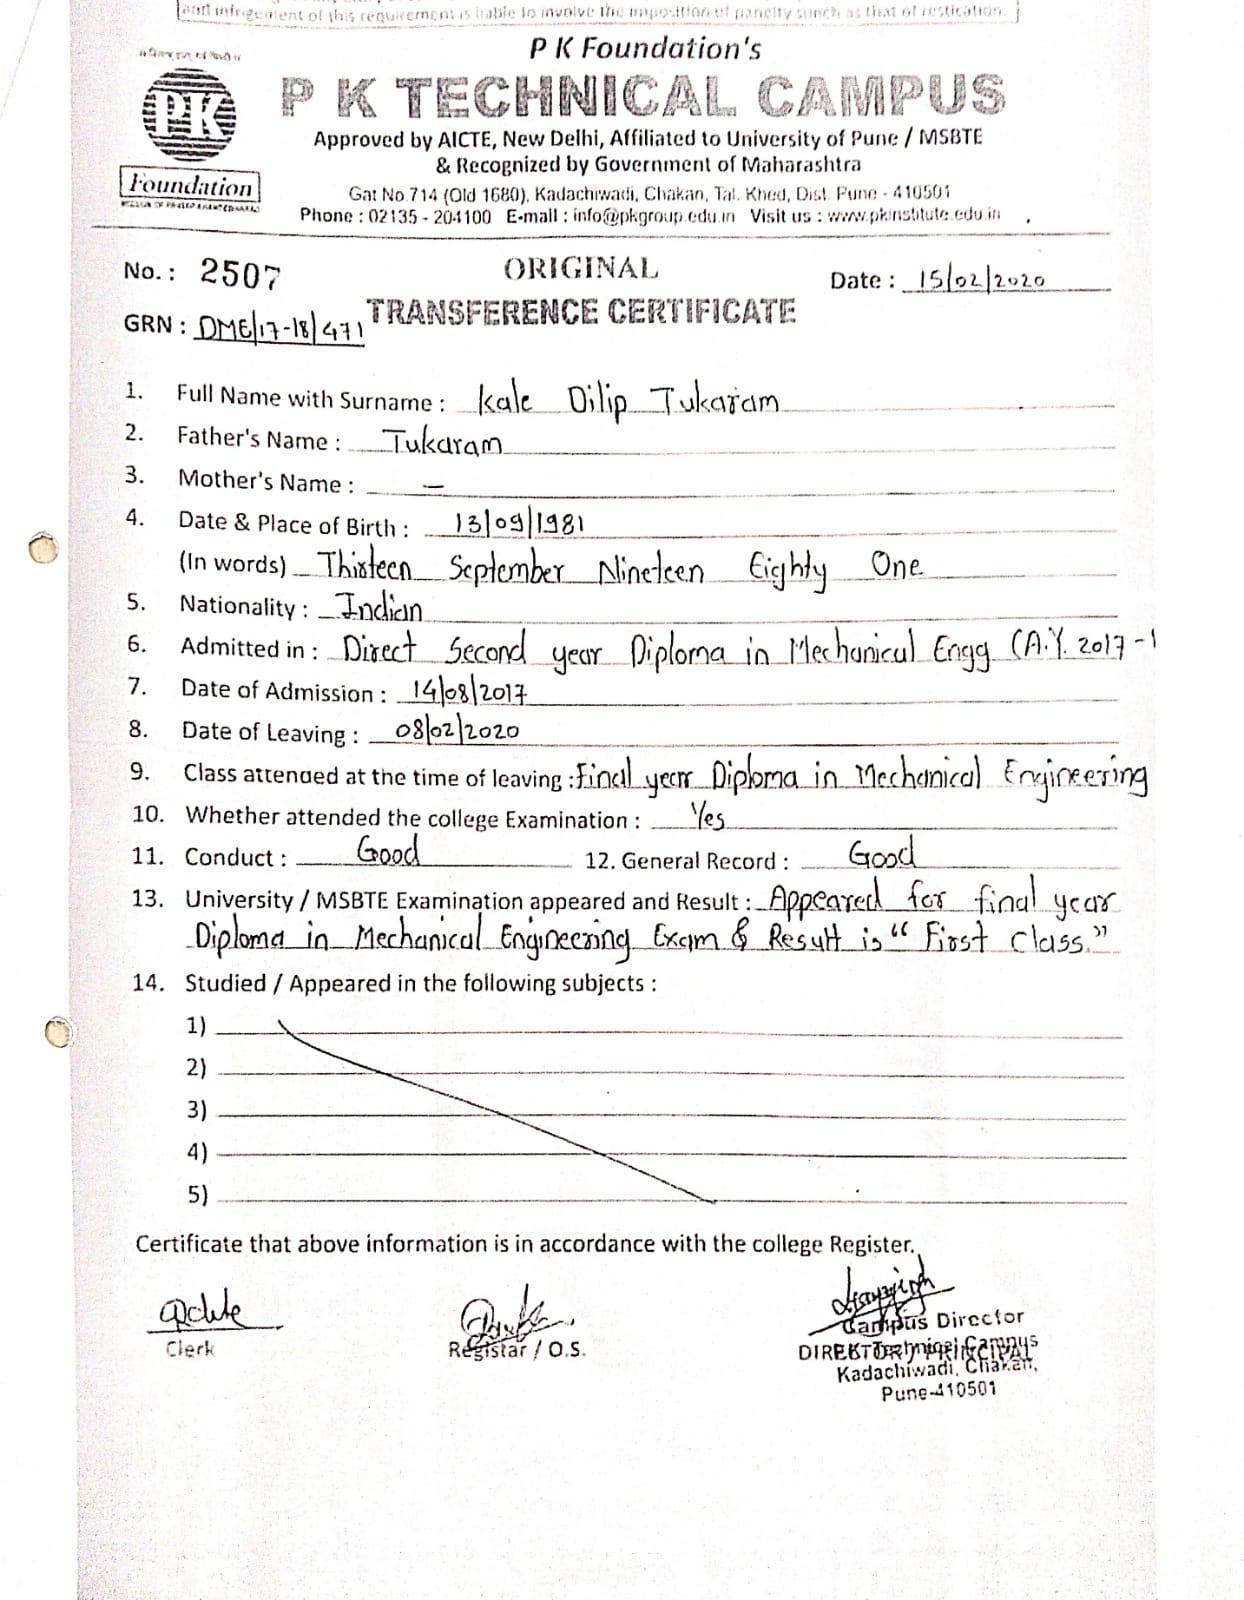 and infregement of this requirement is liable to involve the imposition of panelty sunch as that of restication.
P K Foundation's
PK
Foundation
P K TECHNICAL CAMPUS
Approved by AICTE, New Delhi, Affiliated to University of Pune / MSBTE
& Recognized by Government of Maharashtra
Gat No.714 (Old 1680), Kadachiwadi, Chakan, Tal. Khed, Dist. Pune - 410501
Phone : 02135 - 204100 E-mail : info@pkgroup.edu.in Visit us : www.pkinstitute.edu.in
No. : 2507 ORIGINAL Date : 15/02/2020
GRN : DME/17-18/471 TRANSFERENCE CERTIFICATE
1. Full Name with Surname : Kale Dilip Tukaram
2. Father's Name : Tukaram
3. Mother's Name : —
4. Date & Place of Birth : 13/09/1981
(In words) Thirteen September Nineteen Eighty One
5. Nationality : Indian
6. Admitted in : Direct Second year Diploma in Mechanical Engg (A.Y. 2017-1
7. Date of Admission : 14/08/2017
8. Date of Leaving : 08/02/2020
9. Class attended at the time of leaving : Final year Diploma in Mechanical Engineering
10. Whether attended the college Examination : Yes
11. Conduct : Good 12. General Record : Good
13. University / MSBTE Examination appeared and Result : Appeared for final year
Diploma in Mechanical Engineering Exam & Result is "First Class."
14. Studied / Appeared in the following subjects :
1)
2)
3)
4)
5)
Certificate that above information is in accordance with the college Register.
Clerk
Registar / O.S.
Campus Director
DIRECTOR / PRINCIPAL
P.K. Technical Campus
Kadachiwadi, Chakan,
Pune-410501